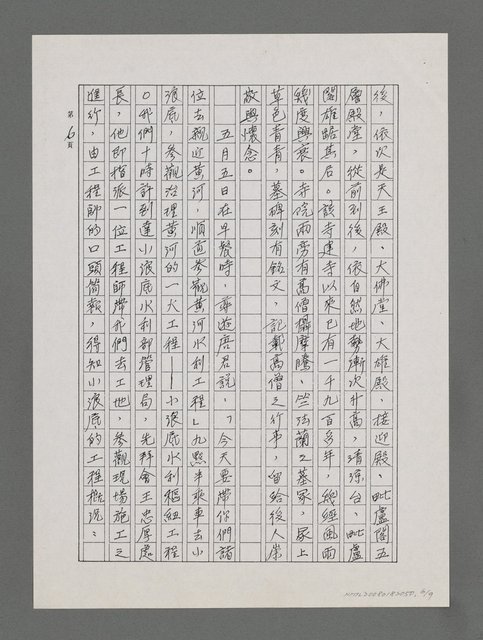 後，依次是天王殿、大佛堂、大雄殿、接迎殿、毗盧閣五
層殿堂，從前到後，依自然地勢漸次升高，清涼台、毗盧
閣雄踞其后。該寺建寺以來已有一千九百多年，幾經風雨
幾度興衰。寺院兩旁有高僧攝摩騰、竺法蘭之墓冢，冢上
草色青青，墓碑刻有銘文，記載高僧之行事，留給後人崇
敬與懷念。
五月五日在早餐時，導遊唐君說，「今天要帶你們諸
位去親近黃河，順道參觀黃河水利工程」九點半乘車去小
浪底，參觀治理黃河的一大工程——小浪底水利樞紐工程
。我們十時許到達小浪底水利部管理局，先拜會王忠厚處
長，他即指派一位工程師帶我們去工地，參觀現場施工之
進行，由工程師的口頭簡報，得知小浪底的工程概況：
第6頁
NMTL20080182050, 6/9